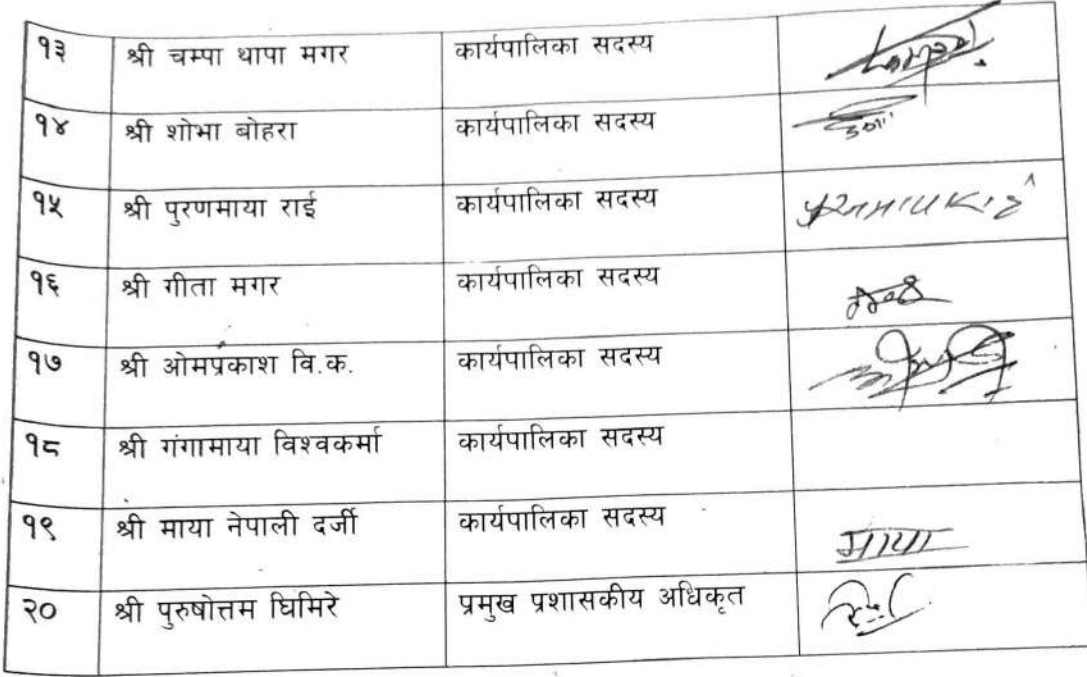 १३ श्री चम्पा थापा मगर कार्यपालिका सदस्य
१४ श्री शोभा बोहरा कार्यपालिका सदस्य
१५ श्री पुरणमाया राई कार्यपालिका सदस्य
१६ श्री गीता मगर कार्यपालिका सदस्य
१७ श्री ओमप्रकाश वि.क. कार्यपालिका सदस्य
१८ श्री गंगामाया विश्वकर्मा कार्यपालिका सदस्य
१९ श्री माया नेपाली दर्जी कार्यपालिका सदस्य माया
२० श्री पुरुषोत्तम घिमिरे प्रमुख प्रशासकीय अधिकृत